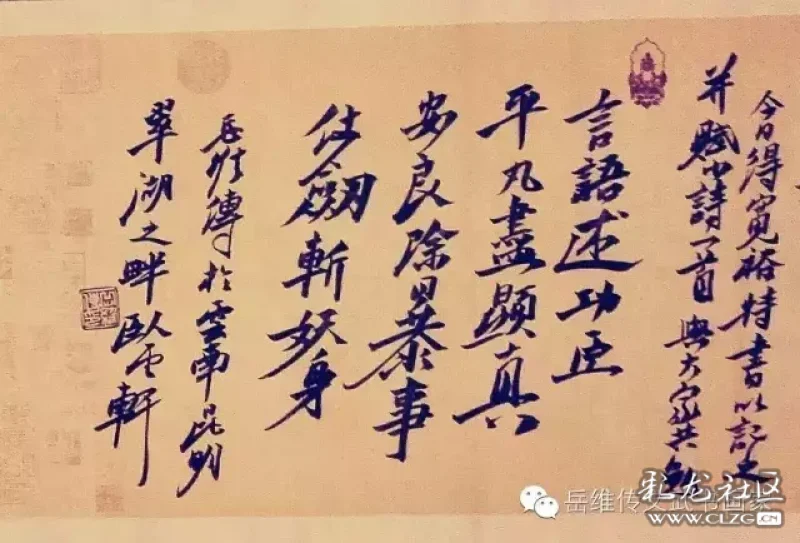 今日得寬裕特書以記之
并賦小詩一首與大家共
言語述功臣
平凡盡顯真
安良除暴事
仗劍斬妖身
岳維傳於雲南昆明
翠湖之畔臥雲軒
岳维传文武书画家
彩龙社区
WWW.CLZG.CN